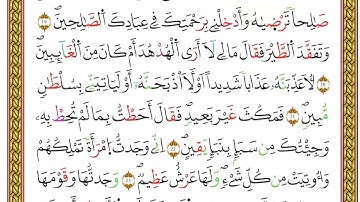 صَٰلِحاٗ تَرْضَيٰهُ وَأَدْخِلْنِے بِرَحْمَتِكَ فِے عِبَادِكَ اَ۬لصَّٰلِحِينَۖ ١٩
وَتَفَقَّدَ اَ۬لطَّيْرَ فَقَالَ مَا لِي لَآ أَرَي اَ۬لْهُدْهُدَ أَمْ كَانَ مِنَ اَ۬لْغَآئِبِينَۖ
٢٠ لُأعَذِّبَنَّهُۥ عَذَاباٗ شَدِيداً اَوْ لَأَاْذْبَحَنَّهُۥٓ أَوْ لَيَاتِيَنِّے بِسُلْطَٰنٖ
مُّبِينٖۖ ٢١ فَمَكُثَ غَيْرَ بَعِيدٖ فَقَالَ أَحَطتُّ بِمَا لَمْ تُحِطْ بِهِۦ
وَجِئْتُكَ مِن سَبَإِۢ بِنَبَإٖ يَقِينٍۖ ٢٢ اِنِّے وَجَدتُّ اُ۪مْرَأَةٗ تَمْلِكُهُمْ
وَأُوتِيَتْ مِن كُلِّ شَےْءٖۖ وَلَهَا عَرْشٌ عَظِيمٞۖ ٢٣ وَجَدتُّهَا وَقَوْمَهَا